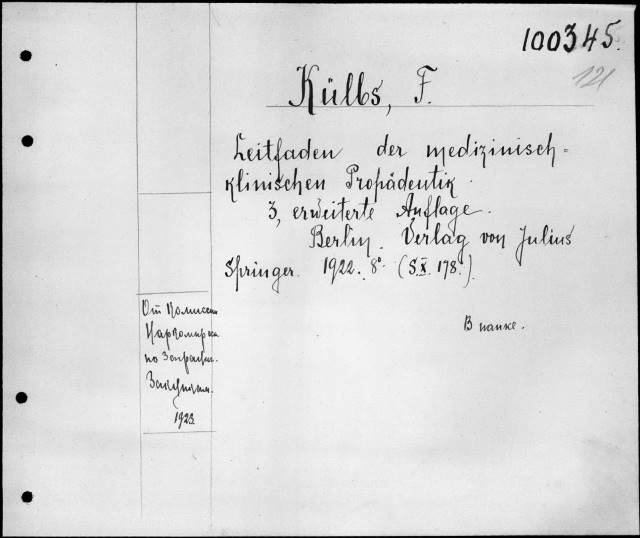 100345.
121
Külbs, F.
Leitfaden der medizinisch-
klinischen Propädeutik.
3, erweiterte Auflage.
Berlin. Verlag von Julius
Springer. 1922. 8°. (S.X. 178.)
В папке.
От Комиссии
Наркомпроса
по Заграничн.
Закупкам.
1923.